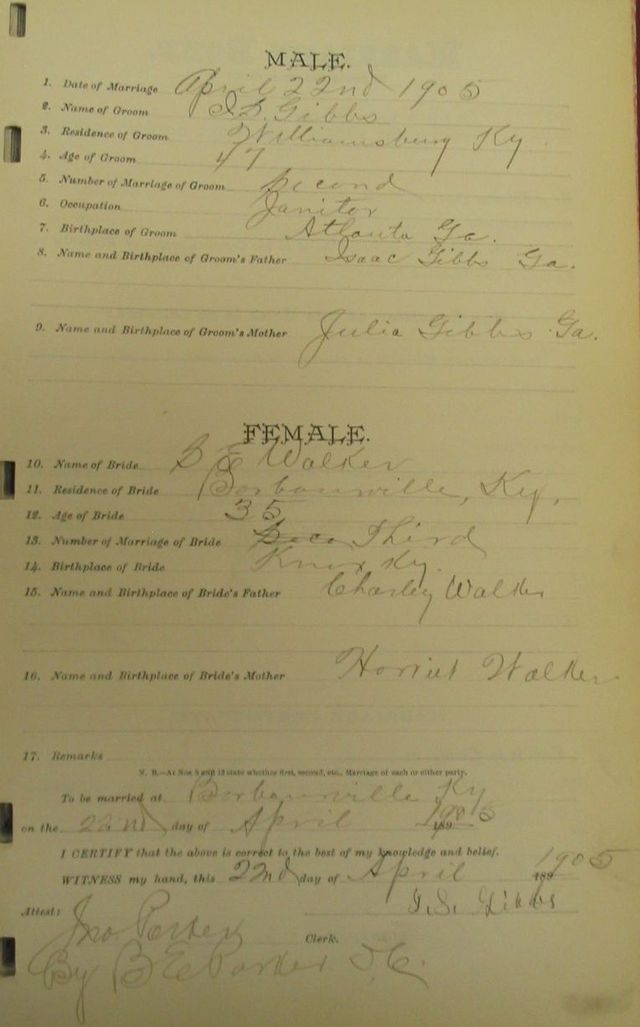 MALE.
1. Date of Marriage April 22nd 1905
2. Name of Groom I. S. Gibbs
3. Residence of Groom Williamsburg Ky.
4. Age of Groom 47
5. Number of Marriage of Groom Second
6. Occupation Janitor
7. Birthplace of Groom Atlanta Ga.
8. Name and Birthplace of Groom's Father Isaac Gibbs Ga.
9. Name and Birthplace of Groom's Mother Julia Gibbs Ga.
FEMALE.
10. Name of Bride S E Walker
11. Residence of Bride Barbourville, Ky.
12. Age of Bride 35
13. Number of Marriage of Bride Third
14. Birthplace of Bride Knox Ky.
15. Name and Birthplace of Bride's Father Charley Walker
16. Name and Birthplace of Bride's Mother Harriet Walker
17. Remarks
N. B.—At Nos 5 and 13 state whether first, second, etc., Marriage of each or either party.
To be married at Barbourville Ky
on the 22nd day of April 1905
I CERTIFY that the above is correct to the best of my knowledge and belief.
WITNESS my hand, this 22nd day of April 1905
I. S. Gibbs
Attest:
Jno. Parker Clerk.
By B E Parker D. C.